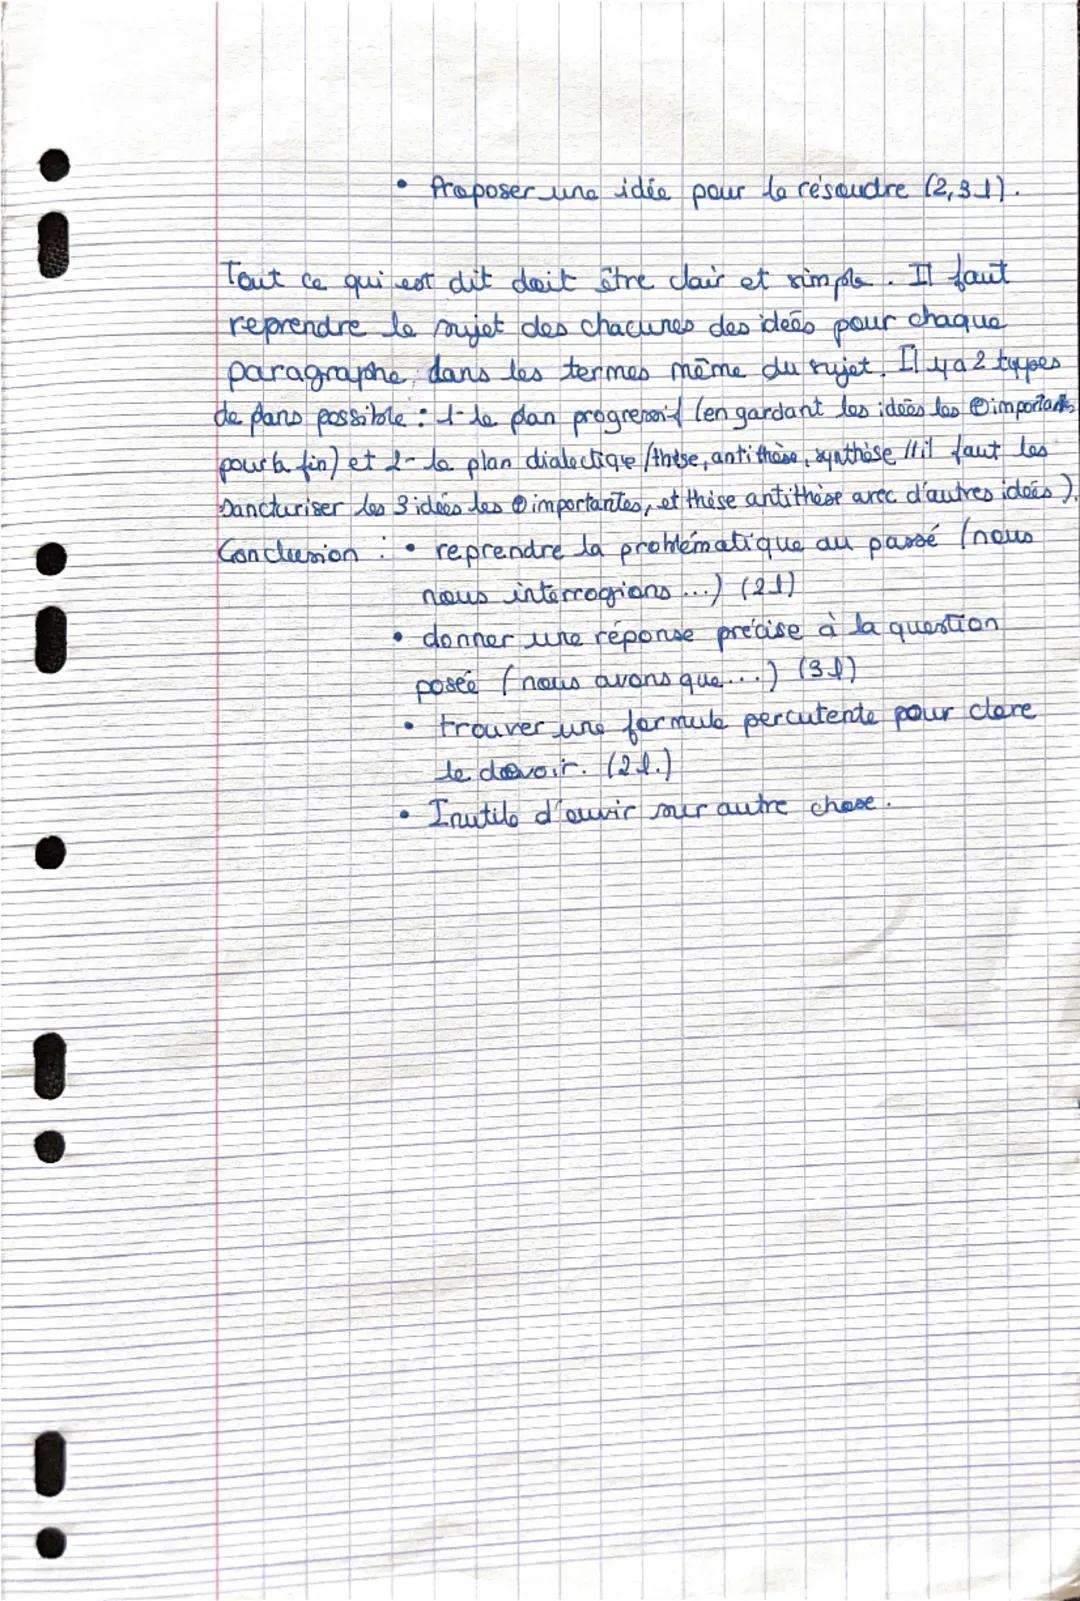 • Proposer une idée pour le résoudre (2,3 l).
Tout ce qui est dit doit être clair et simple. Il faut
reprendre le sujet des chacunes des idées pour chaque
paragraphe, dans les termes même du sujet. Il y a 2 types
de plans possible : 1- le plan progressif (en gardant les idées les ⊕ importants
pour la fin) et 2- le plan dialectique (thèse, antithèse, synthèse // il faut les
sancturiser les 3 idées les ⊕ importantes, et thèse antithèse avec d'autres idées).
Conclusion : • reprendre la problématique au passé (nous
nous interrogions ...) (2 l)
• donner une réponse précise à la question
posée (nous avons que...) (3 l)
• trouver une formule percutente pour clore
le devoir. (2 l.)
• Inutile d'ouvir sur autre chose.